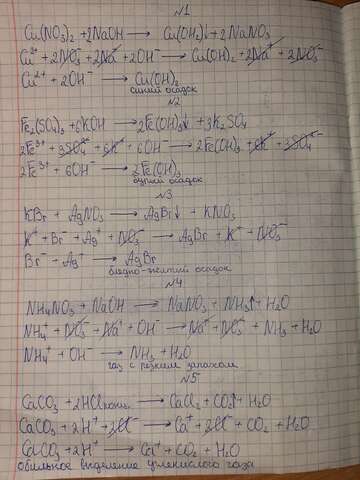 №1
Cu(NO₃)₂ + 2NaOH → Cu(OH)₂↓ + 2NaNO₃
Cu²⁺ + 2NO₃⁻ + 2Na⁺ + 2OH⁻ → Cu(OH)₂ + 2Na⁺ + 2NO₃⁻
Cu²⁺ + 2OH⁻ → Cu(OH)₂
синий осадок
№2
Fe₂(SO₄)₃ + 6KOH → 2Fe(OH)₃↓ + 3K₂SO₄
2Fe³⁺ + 3SO₄²⁻ + 6K⁺ + 6OH⁻ → 2Fe(OH)₃ + 6K⁺ + 3SO₄²⁻
2Fe³⁺ + 6OH⁻ → 2Fe(OH)₃
бурый осадок
№3
KBr + AgNO₃ → AgBr↓ + KNO₃
K⁺ + Br⁻ + Ag⁺ + NO₃⁻ → AgBr + K⁺ + NO₃⁻
Br⁻ + Ag⁺ → AgBr
бледно-желтый осадок
№4
NH₄NO₃ + NaOH → NaNO₃ + NH₃↑ + H₂O
NH₄⁺ + NO₃⁻ + Na⁺ + OH⁻ → Na⁺ + NO₃⁻ + NH₃ + H₂O
NH₄⁺ + OH⁻ → NH₃ + H₂O
газ с резким запахом
№5
CaCO₃ + 2HCl конц. → CaCl₂ + CO₂↑ + H₂O
CaCO₃ + 2H⁺ + 2Cl⁻ → Ca⁺ + 2Cl⁻ + CO₂ + H₂O
CaCO₃ + 2H⁺ → Ca⁺ + CO₂ + H₂O
обильное выделение углекислого газа